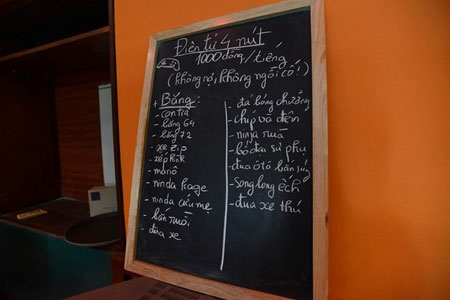 Điện tử 4 nút
1000 đồng/tiếng
(không nợ, không ngồi cố!)
+ Băng:
- contra
- băng 64
- băng 72
- xe zip
- xếp hình
- mario
- ninda Rage
- ninda cứu mẹ
- bắn ruồi
- đua xe
- đá bóng chưởng
- chíp và đên
- ninja rùa
- bồ đài sư phụ
- đua ôtô bắn súng
- song long ếch
- đua xe thú